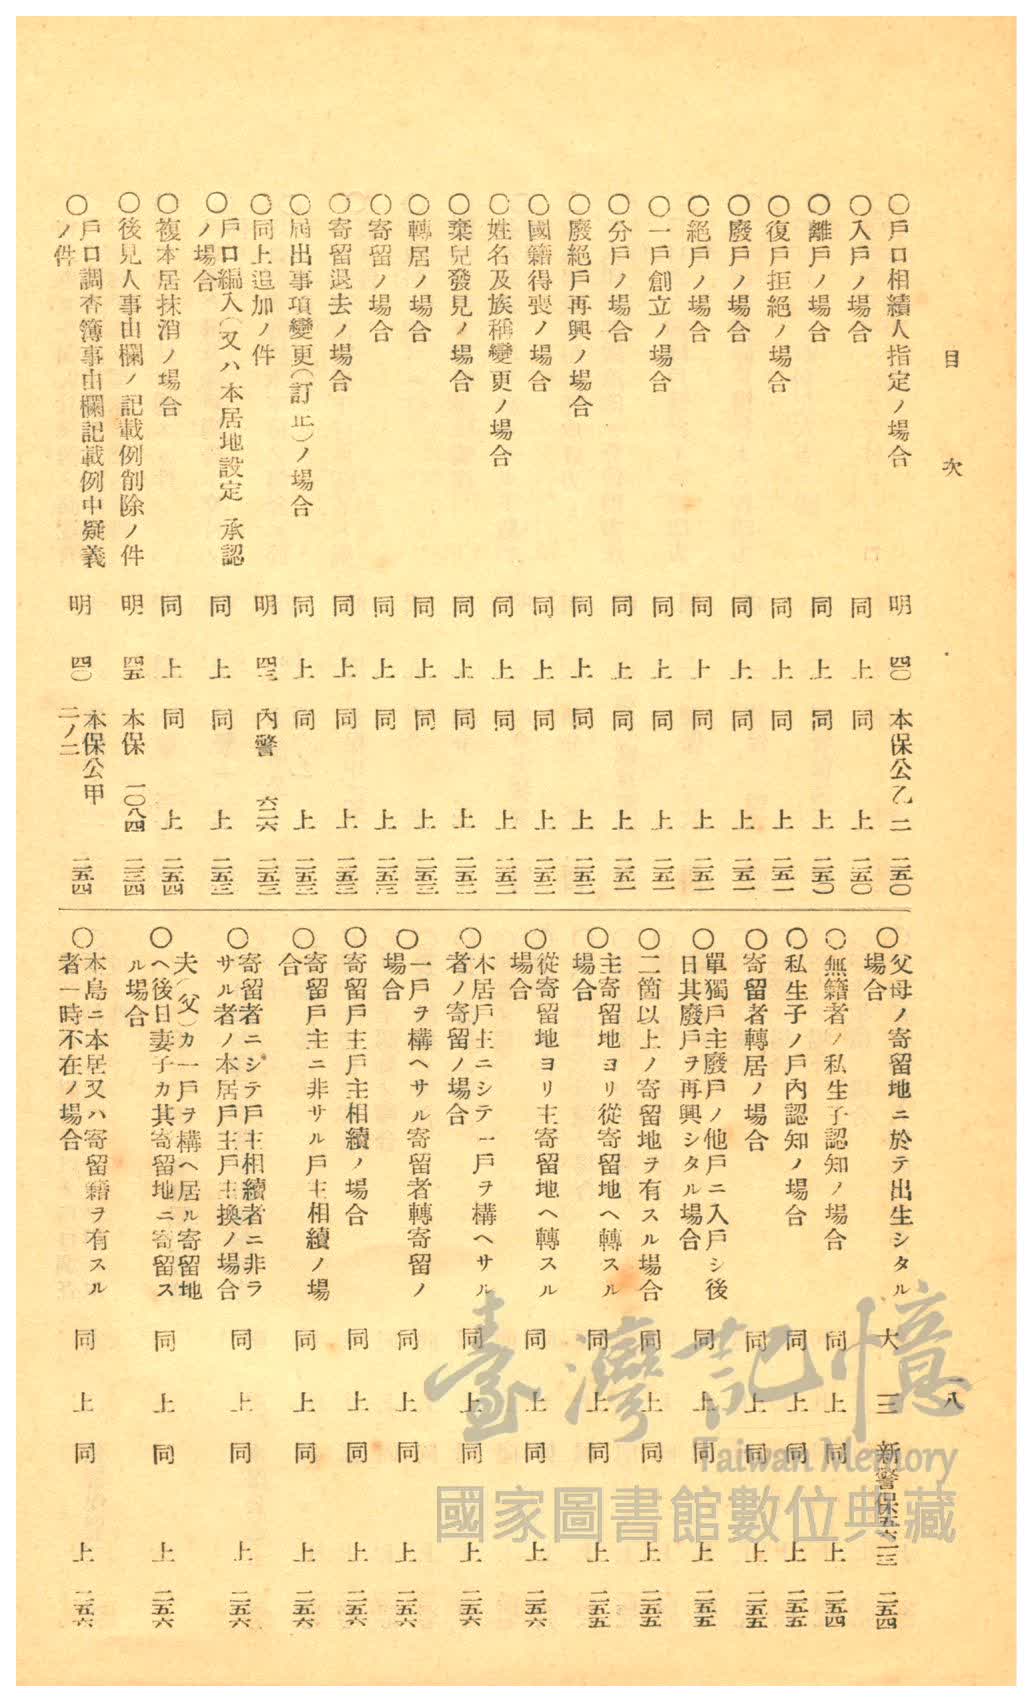 目次
一八
○戶口相續人指定ノ場合 明四〇 本保公乙二 二五〇
○入戶ノ場合 同上 同上 二五〇
○離戶ノ場合 同上 同上 二五〇
○復戶拒絕ノ場合 同上 同上 二五一
○廢戶ノ場合 同上 同上 二五一
○絕戶ノ場合 同上 同上 二五一
○一戶創立ノ場合 同上 同上 二五一
○分戶ノ場合 同上 同上 二五一
○廢絕戶再興ノ場合 同上 同上 二五二
○國籍得喪ノ場合 同上 同上 二五二
○姓名及族稱變更ノ場合 同上 同上 二五二
○棄兒發見ノ場合 同上 同上 二五二
○轉居ノ場合 同上 同上 二五三
○寄留ノ場合 同上 同上 二五三
○寄留退去ノ場合 同上 同上 二五三
○屆出事項變更(訂正)ノ場合 同上 同上 二五三
○同上追加ノ件 明四三 內警 六二六 二五三
○戶口編入(又ハ本居地設定 承認
ノ場合 同上 同上 二五三
○複本居抹消ノ場合 同上 同上 二五四
○後見人事由欄ノ記載例削除ノ件 明四五 本保 一〇八四 二三四
○戶口調查簿事由欄記載例中疑義
ノ件 明四〇 本保公甲
二ノ二 二五四
○父母ノ寄留地ニ於テ出生シタル
場合 大三 新警保五六一三 二五四
○無籍者ノ私生子認知ノ場合 同上 同上 二五四
○私生子ノ戶內認知ノ場合 同上 同上 二五五
○寄留者轉居ノ場合 同上 同上 二五五
○單獨戶主廢戶ノ他戶ニ入戶シ後
日其廢戶ヲ再興シタル場合 同上 同上 二五五
○二箇以上ノ寄留地ヲ有スル場合 同上 同上 二五五
○主寄留地ヨリ從寄留地ヘ轉スル
場合 同上 同上 二五五
○從寄留地ヨリ主寄留地ヘ轉スル
場合 同上 同上 二五六
○本居戶主ニシテ一戶ヲ構ヘサル
者ノ寄留ノ場合 同上 同上 二五六
○一戶ヲ構ヘサル寄留者轉寄留ノ
場合 同上 同上 二五六
○寄留戶主戶主相續ノ場合 同上 同上 二五六
○寄留戶主ニ非サル戶主相續ノ場
合 同上 同上 二五六
○寄留者ニシテ戶主相續者ニ非ラ
サル者ノ本居戶主戶主換ノ場合 同上 同上 二五六
○夫(父)カ一戶ヲ構ヘ居ル寄留地
ヘ後日妻子カ其寄留地ニ寄留ス
ル場合 同上 同上 二五六
○本島ニ本居又ハ寄留籍ヲ有スル
者一時不在ノ場合 同上 同上 二五六
臺灣記憶
Taiwan Memory
國家圖書館數位典藏